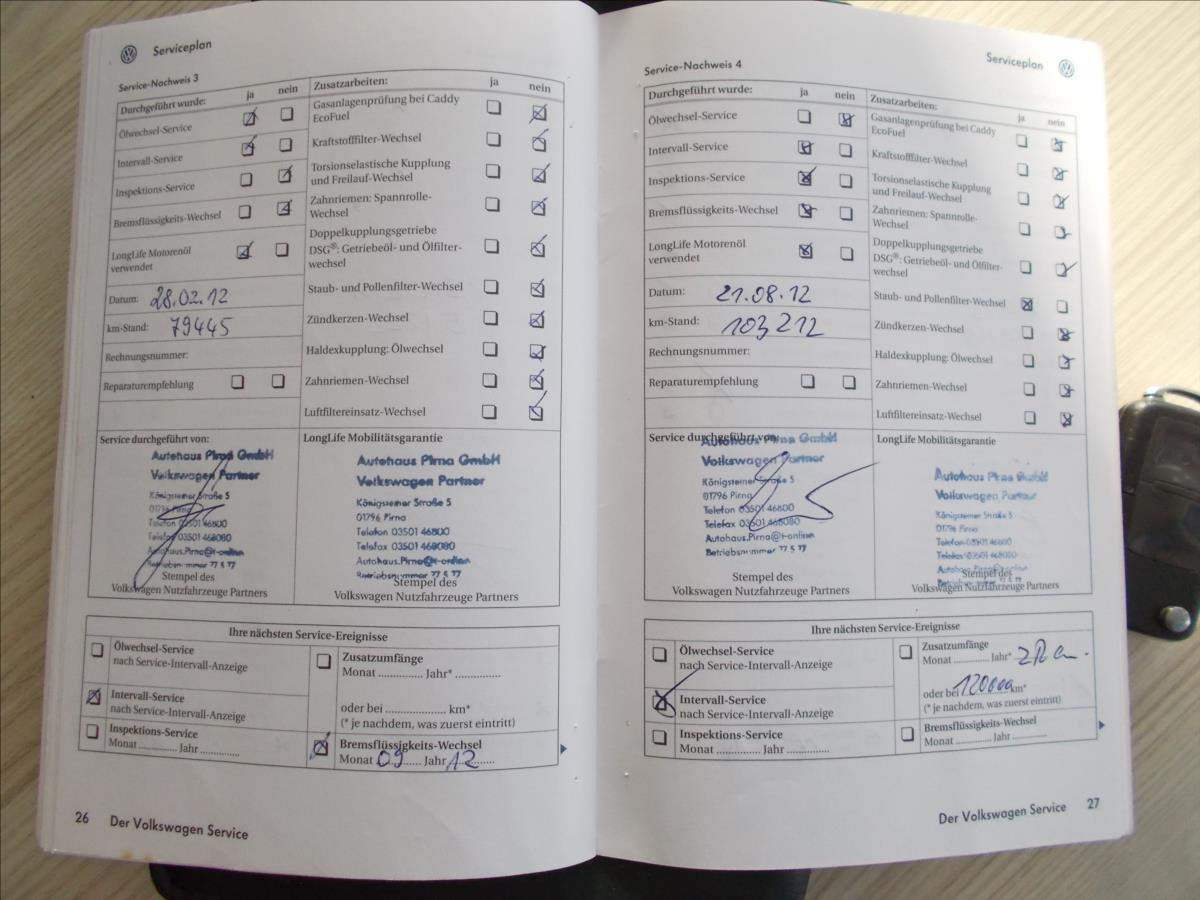 Serviceplan
Service-Nachweis 3
Durchgeführt wurde: ja nein
Ölwechsel-Service
Intervall-Service
Inspektions-Service
Bremsflüssigkeits-Wechsel
LongLife Motorenöl
verwendet
Datum: 28.02.12
km-Stand: 79445
Rechnungsnummer:
Reparaturempfehlung
Zusatzarbeiten: ja nein
Gasanlagenprüfung bei Caddy
EcoFuel
Kraftstofffilter-Wechsel
Torsionselastische Kupplung
und Freilauf-Wechsel
Zahnriemen: Spannrolle-
Wechsel
Doppelkupplungsgetriebe
DSG®: Getriebeöl- und Ölfilter-
wechsel
Staub- und Pollenfilter-Wechsel
Zündkerzen-Wechsel
Haldexkupplung: Ölwechsel
Zahnriemen-Wechsel
Luftfiltereinsatz-Wechsel
Service durchgeführt von:
Autohaus Pirna GmbH
Volkswagen Partner
Königsteiner Straße 5
01796 Pirna
Telefon 03501 46800
Telefax 03501 468080
Autohaus.Pirna@t-online
Betriebsnummer 77 5 77
Stempel des
Volkswagen Nutzfahrzeuge Partners
LongLife Mobilitätsgarantie
Autohaus Pirna GmbH
Volkswagen Partner
Königsteiner Straße 5
01796 Pirna
Telefon 03501 46800
Telefax 03501 468080
Autohaus.Pirna@t-online
Betriebsnummer 77 5 77
Stempel des
Volkswagen Nutzfahrzeuge Partners
Ihre nächsten Service-Ereignisse
Ölwechsel-Service
nach Service-Intervall-Anzeige
Intervall-Service
nach Service-Intervall-Anzeige
Inspektions-Service
Monat ............ Jahr ............
Zusatzumfänge
Monat ............ Jahr* ............
oder bei .................... km*
(* je nachdem, was zuerst eintritt)
Bremsflüssigkeits-Wechsel
Monat 09 Jahr 12
26 Der Volkswagen Service
Serviceplan
Service-Nachweis 4
Durchgeführt wurde: ja nein
Ölwechsel-Service
Intervall-Service
Inspektions-Service
Bremsflüssigkeits-Wechsel
LongLife Motorenöl
verwendet
Datum: 21.08.12
km-Stand: 103212
Rechnungsnummer:
Reparaturempfehlung
Zusatzarbeiten: ja nein
Gasanlagenprüfung bei Caddy
EcoFuel
Kraftstofffilter-Wechsel
Torsionselastische Kupplung
und Freilauf-Wechsel
Zahnriemen: Spannrolle-
Wechsel
Doppelkupplungsgetriebe
DSG®: Getriebeöl- und Ölfilter-
wechsel
Staub- und Pollenfilter-Wechsel
Zündkerzen-Wechsel
Haldexkupplung: Ölwechsel
Zahnriemen-Wechsel
Luftfiltereinsatz-Wechsel
Service durchgeführt von:
Autohaus Pirna GmbH
Volkswagen Partner
Königsteiner Straße 5
01796 Pirna
Telefon 03501 46800
Telefax 03501 468080
Autohaus.Pirna@t-online
Betriebsnummer 77 5 77
Stempel des
Volkswagen Nutzfahrzeuge Partners
LongLife Mobilitätsgarantie
Autohaus Pirna GmbH
Volkswagen Partner
Königsteiner Straße 5
01796 Pirna
Telefon 03501 46800
Telefax 03501 468080
Autohaus.Pirna@t-online
Betriebsnummer 77 5 77
Stempel des
Volkswagen Nutzfahrzeuge Partners
Ihre nächsten Service-Ereignisse
Ölwechsel-Service
nach Service-Intervall-Anzeige
Intervall-Service
nach Service-Intervall-Anzeige
Inspektions-Service
Monat ............ Jahr ............
Zusatzumfänge
Monat ............ Jahr*
oder bei 120000 km*
(* je nachdem, was zuerst eintritt)
Bremsflüssigkeits-Wechsel
Monat ............ Jahr ............
Der Volkswagen Service 27